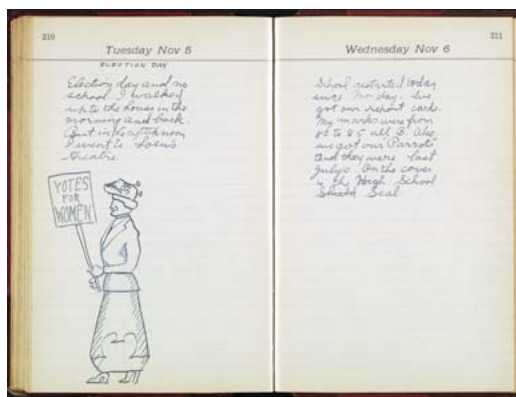 310
Tuesday Nov 5
ELECTION DAY
Election day and no
school. I walked
up to the house in the
morning and back.
But in the afternoon
I went to Loew's
theatre.
VOTES
FOR
WOMEN
311
Wednesday Nov 6
School restarted today
since Monday. We
got our report card.
My marks were from
to 85 all B. Also
we got our "Parrots"
and they were last
July's. On the cover
is the High School
Seal